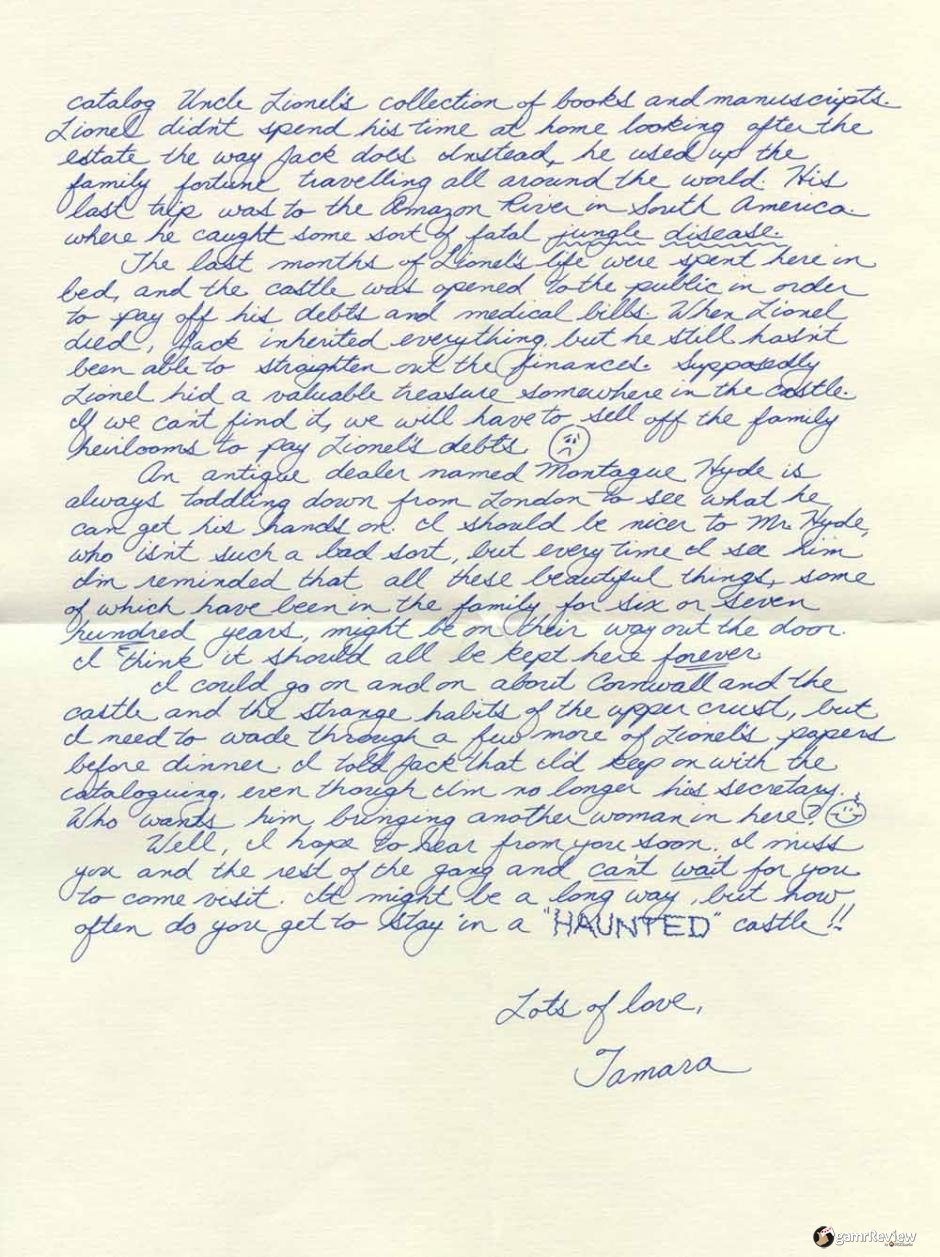 catalog Uncle Lionel's collection of books and manuscripts.
Lionel didn't spend his time at home looking after the
estate the way Jack does. Instead, he used up the
family fortune travelling all around the world. His
last trip was to the Amazon River in South America
where he caught some sort of fatal jungle disease.
The last months of Lionel's life were spent here in
bed, and the castle was opened to the public in order
to pay off his debts and medical bills. When Lionel
died, Jack inherited everything, but he still hasn't
been able to straighten out the finances. Supposedly
Lionel hid a valuable treasure somewhere in the castle.
If we can't find it, we will have to sell off the family
heirlooms to pay Lionel's debts.
An antique dealer named Montague Hyde is
always toddling down from London to see what he
can get his hands on. I should be nicer to Mr. Hyde,
who isn't such a bad sort, but every time I see him
I'm reminded that all these beautiful things, some
of which have been in the family for six or seven
hundred years, might be on their way out the door.
I think it should all be kept here forever.
I could go on and on about Cornwall and the
castle and the strange habits of the upper crust, but
I need to wade through a few more of Lionel's papers
before dinner. I told Jack that I'd keep on with the
cataloguing, even though I'm no longer his secretary.
Who wants him bringing another woman in here?
Well, I hope to hear from you soon. I miss
you and the rest of the gang and can't wait for you
to come visit. It might be a long way, but how
often do you get to stay in a "HAUNTED" castle!!
Lots of love,
Tamara
gamrReview